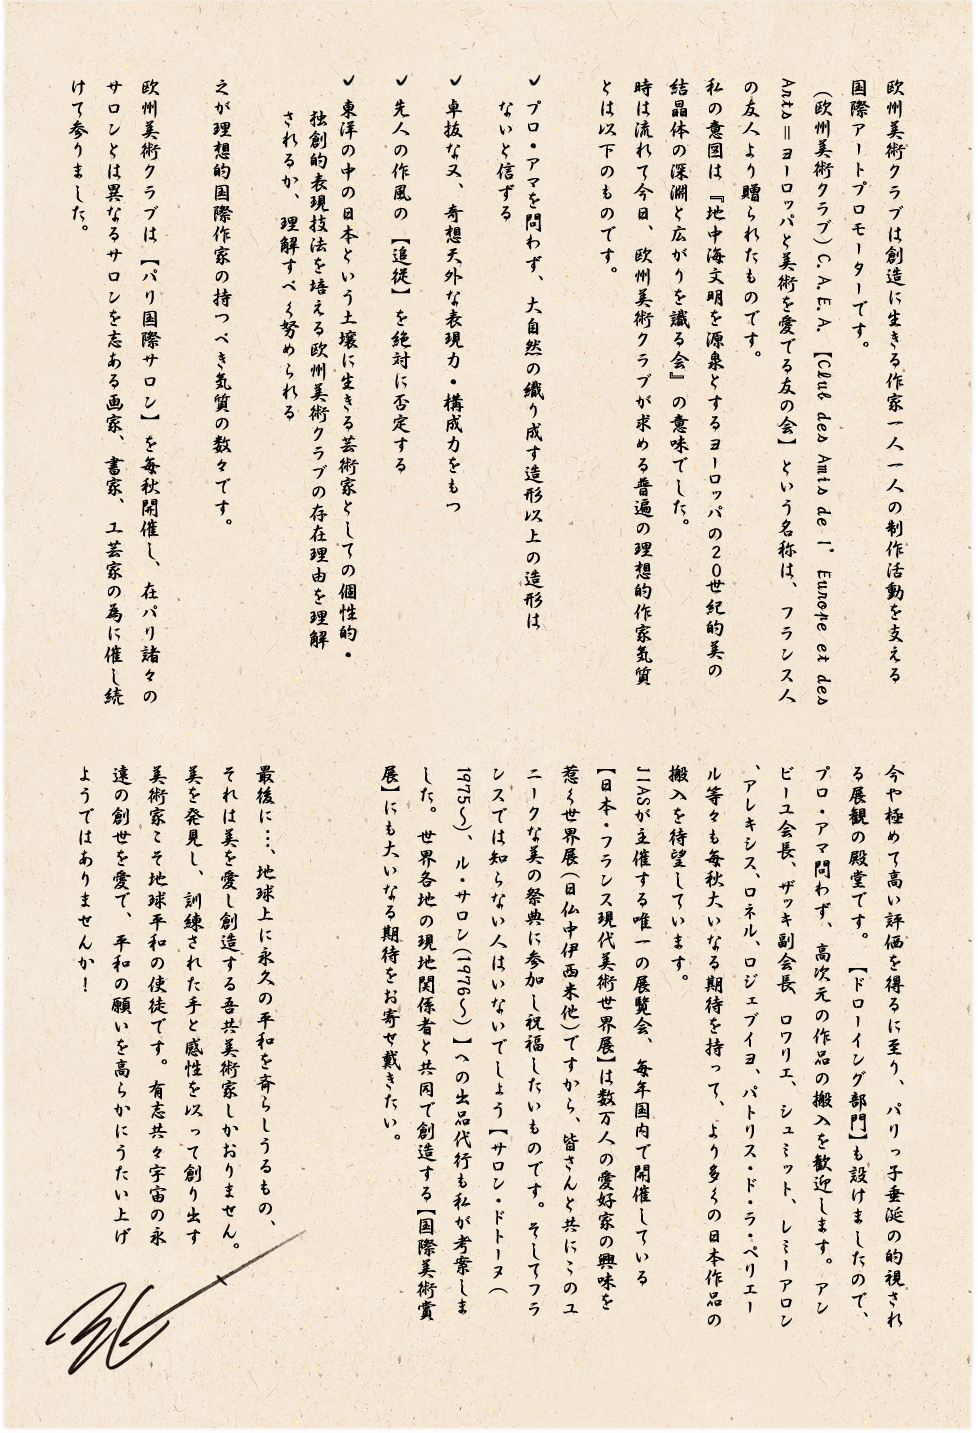 欧州美術クラブは創造に生きる作家一人一人の制作活動を支える
国際アートプロモーターです。
（欧州美術クラブ）C.A.E.A.【Club des Amis de l'Europe et des
Arts＝ヨーロッパと美術を愛でる友の会】という名称は、フランス人
の友人より贈られたものです。
私の意図は『地中海文明を源泉とするヨーロッパの20世紀的美の
結晶体の深淵と広がりを識る会』の意味でした。
時は流れて今日、欧州美術クラブが求める普遍の理想的作家気質
とは以下のものです。
✓ プロ・アマを問わず、大自然の織り成す造形以上の造形は
ないと信ずる
✓ 卓抜な又、奇想天外な表現力・構成力をもつ
✓ 先人の作風の【追従】を絶対に否定する
✓ 東洋の中の日本という土壌に生きる芸術家としての個性的・
独創的表現技法を培える欧州美術クラブの存在理由を理解
されるか、理解すべく努められる
之が理想的国際作家の持つべき気質の数々です。
欧州美術クラブは【パリ国際サロン】を毎秋開催し、在パリ諸々の
サロンとは異なるサロンを志ある画家、書家、工芸家の為に催し続
けて参りました。
今や極めて高い評価を得るに至り、パリっ子垂涎の的視され
る展観の殿堂です。【ドローイング部門】も設けましたので、
プロ・アマ問わず、高次元の作品の搬入を歓迎します。アン
ビーユ会長、ザッキ副会長、ロワリエ、シュミット、レミーアロン
、アレキシス、ロネル、ロジェブイヨ、パトリス・ド・ラ・ペリエー
ル等々も毎秋大いなる期待を持って、より多くの日本作品の
搬入を待望しています。
JIASが主催する唯一の展覧会、毎年国内で開催している
【日本・フランス現代美術世界展】は数万人の愛好家の興味を
惹く世界展（日仏中伊西米他）ですから、皆さんと共にこのユ
ニークな美の祭典に参加し祝福したいものです。そしてフラ
ンスでは知らない人はいないでしょう【サロン・ドトーヌ（
1975〜）、ル・サロン（1976〜）】への出品代行も私が考案しま
した。世界各地の現地関係者と共同で創造する【国際美術賞
展】にも大いなる期待をお寄せ戴きたい。
最後に…、地球上に永久の平和を齊らしうるもの、
それは美を愛し創造する吾共美術家しかおりません。
美を発見し、訓練された手と感性を以って創り出す
美術家こそ地球平和の使徒です。有志共々宇宙の永
遠の創世を愛で、平和の願いを高らかにうたい上げ
ようではありませんか！